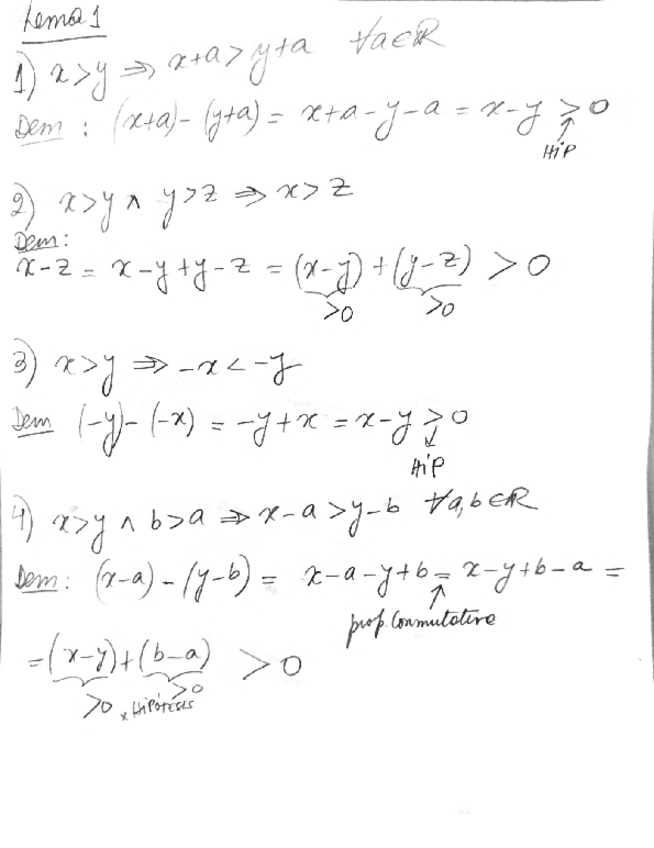 Lema 1
1) x>y ⇒ x+a>y+a ∀a∈ℝ
Dem: (x+a)-(y+a) = x+a-y-a = x-y > 0
↑
HiP
2) x>y ∧ y>z ⇒ x>z
Dem:
x-z = x-y+y-z = (x-y)+(y-z) > 0
>0 >0
3) x>y ⇒ -x<-y
Dem (-y)-(-x) = -y+x = x-y > 0
↓
HiP
4) x>y ∧ b>a ⇒ x-a>y-b ∀a,b∈ℝ
Dem: (x-a)-(y-b) = x-a-y+b = x-y+b-a =
↑
prop. Conmutativa
=(x-y)+(b-a) > 0
>0 >0
x HiPÓTESIS